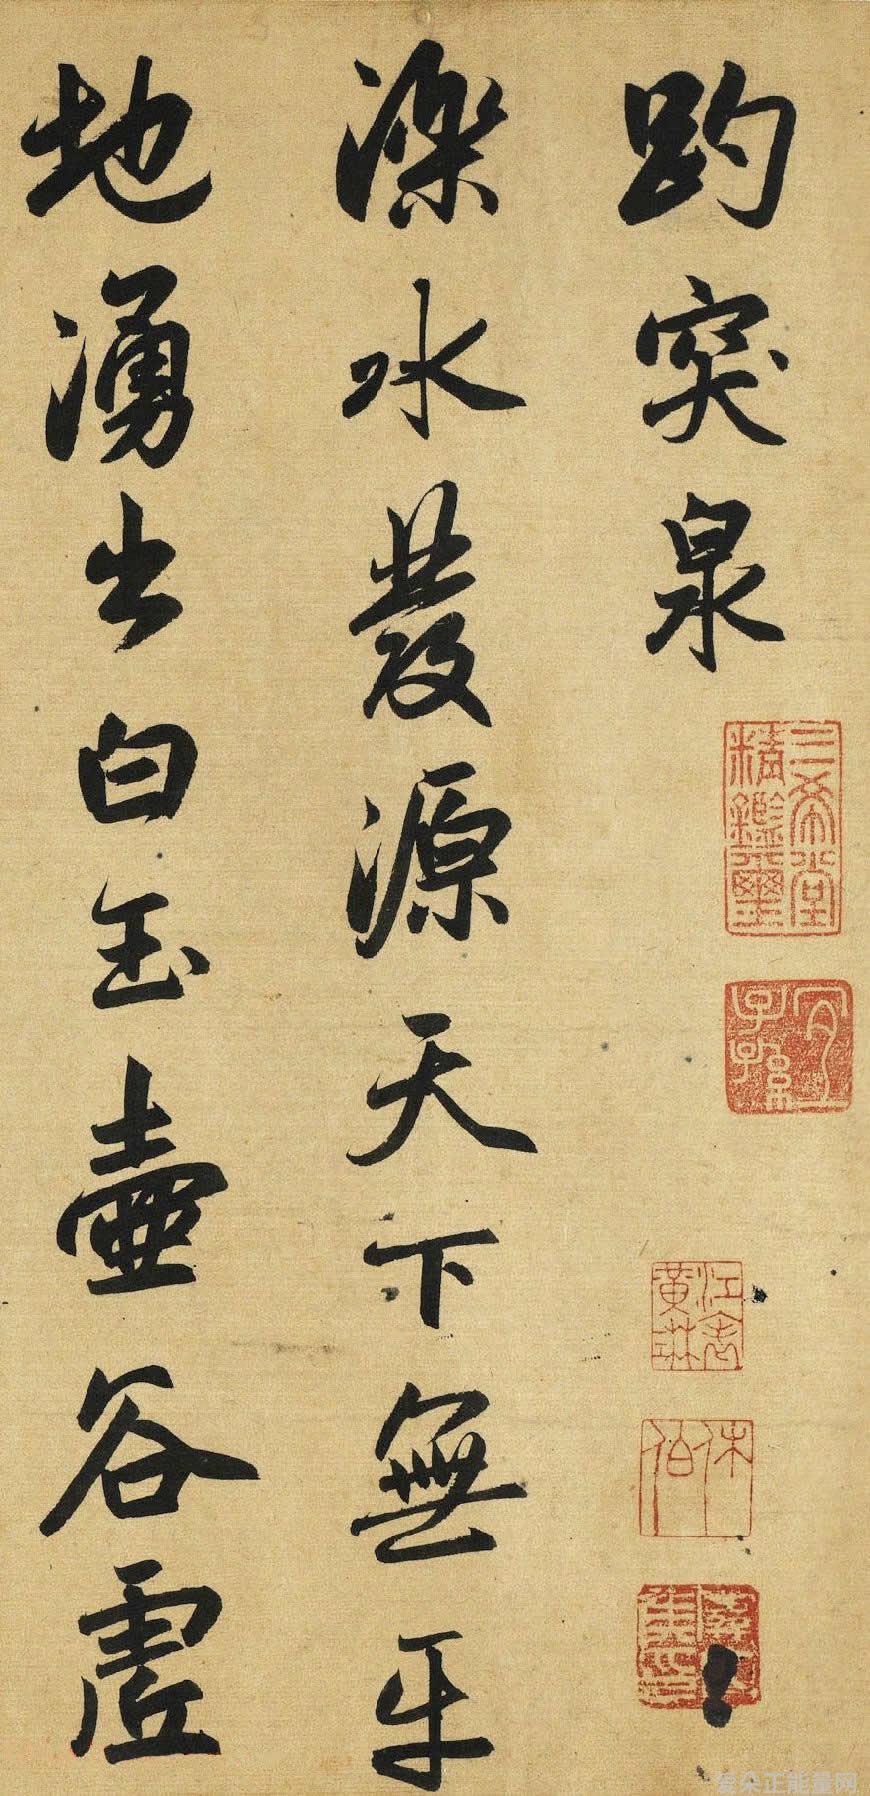 趵突泉
濼水發源天下無平
地湧出白玉壺谷虛
三希堂精鑑璽
宜子孫
江表黃琳
休伯
爱朵正能量网